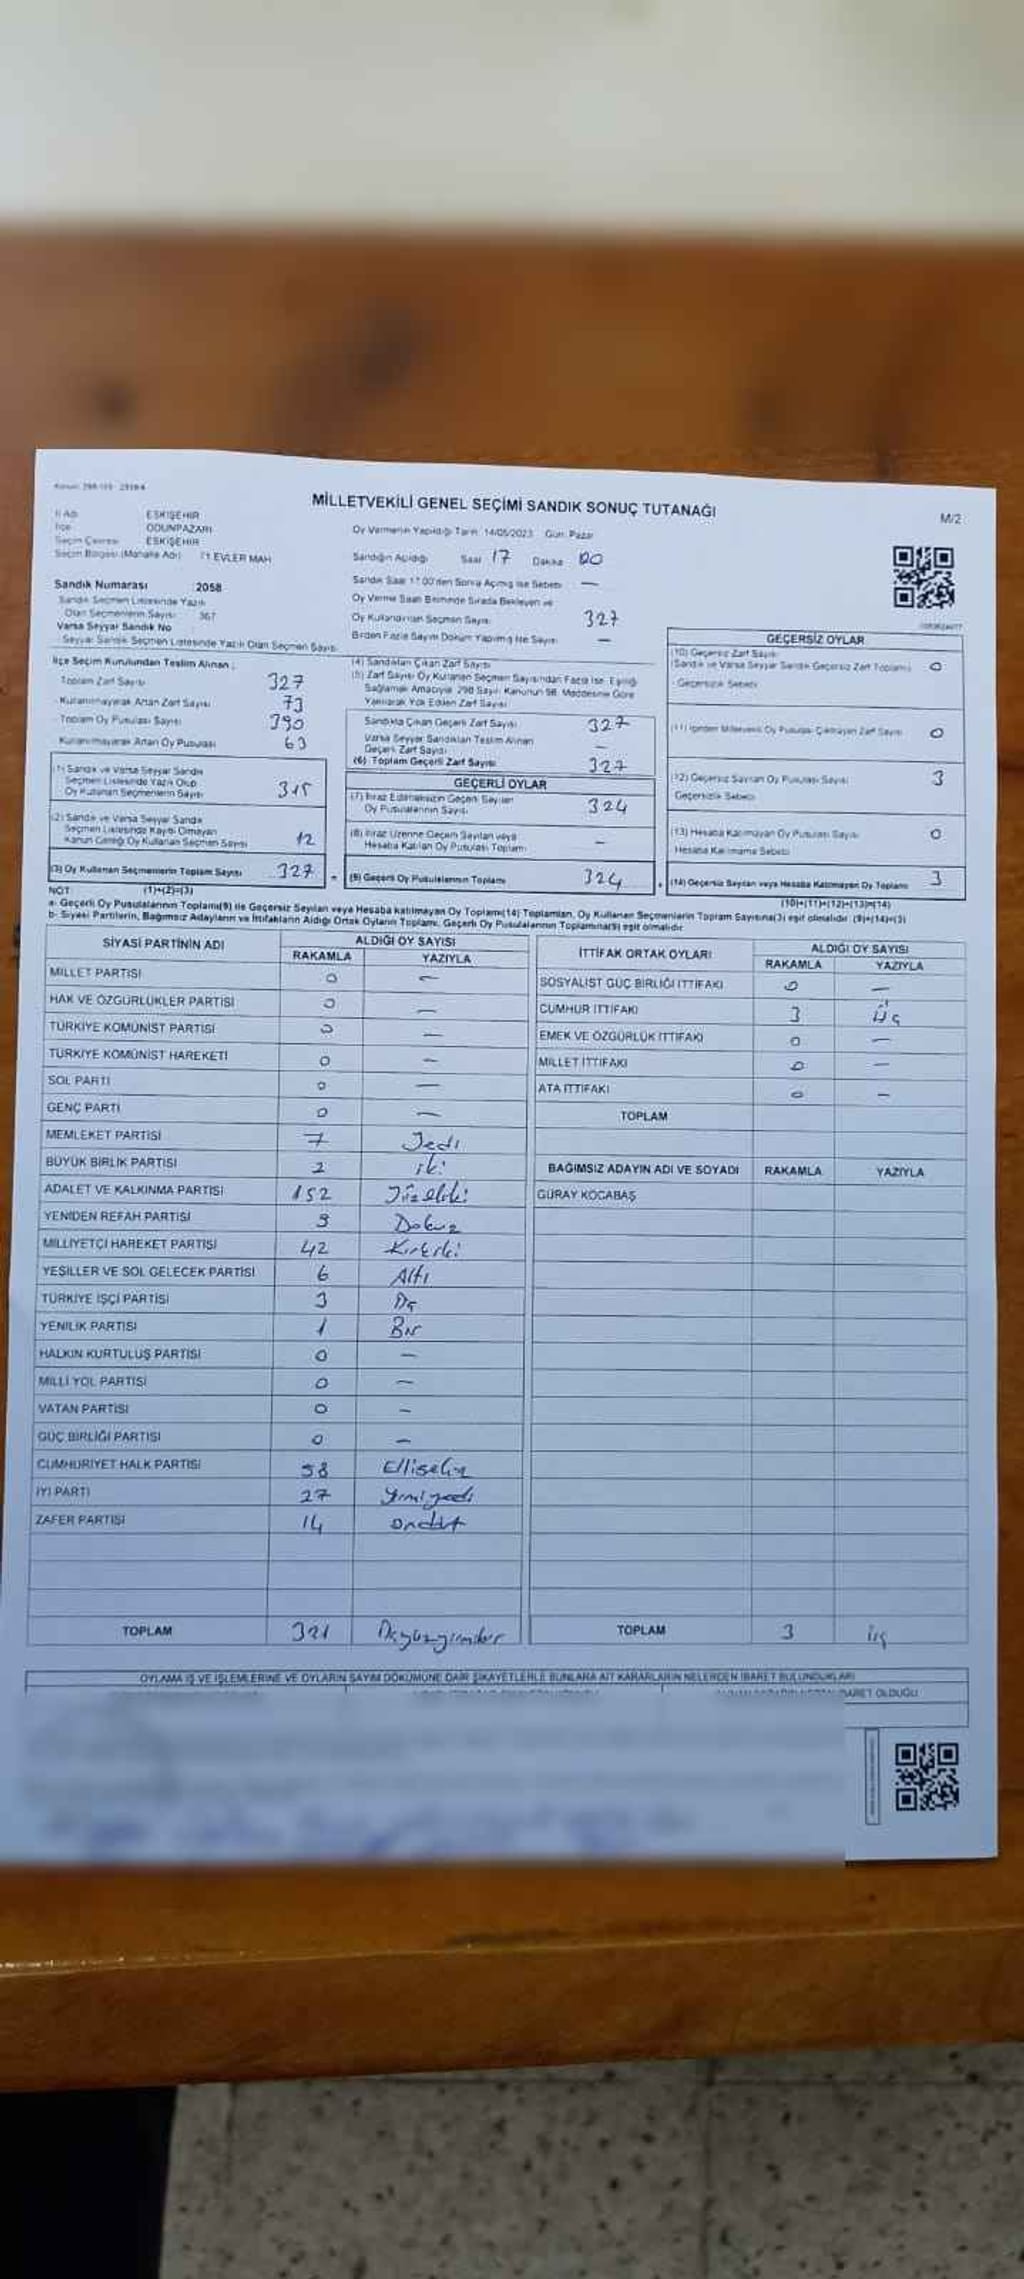 MİLLETVEKİLİ GENEL SEÇİMİ SANDIK SONUÇ TUTANAĞI
M/2
İl Adı ESKİŞEHİR
İlçe ODUNPAZARI
Seçim Çevresi ESKİŞEHİR
Seçim Bölgesi (Mahalle Adı) 71 EVLER MAH
Oy Vermenin Yapıldığı Tarih 14/05/2023 Gün Pazar
Sandığın Açıldığı Saat 17 Dakika 00
Sandık Saat 17:00'den Sonra Açılmış İse Sebebi —
Oy Verme Saati Bitiminde Sırada Bekleyen ve
Oy Kullandırılan Seçmen Sayısı 327
Birden Fazla Sayım Döküm Yapılmış İse Sayısı —
Sandık Numarası 2058
Sandık Seçmen Listesinde Yazılı
Olan Seçmenlerin Sayısı 367
Varsa Seyyar Sandık No
Seyyar Sandık Seçmen Listesinde Yazılı Olan Seçmen Sayısı
İlçe Seçim Kurulundan Teslim Alınan
Toplam Zarf Sayısı 327
Kullanılmayarak Artan Zarf Sayısı 73
Toplam Oy Pusulası Sayısı 390
Kullanılmayarak Artan Oy Pusulası 63
(1) Sandık ve Varsa Seyyar Sandık
Seçmen Listesinde Yazılı Olup
Oy Kullanan Seçmenlerin Sayısı 315
(2) Sandık ve Varsa Seyyar Sandık
Seçmen Listesinde Kaydı Olmayan
Kanun Gereği Oy Kullanan Seçmen Sayısı 12
(3) Oy Kullanan Seçmenlerin Toplam Sayısı 327
(1)+(2)=(3)
(4) Sandıktan Çıkan Zarf Sayısı
(5) Zarf Sayısı Oy Kullanan Seçmen Sayısından Fazla İse, Eşitliği
Sağlamak Amacıyla 298 Sayılı Kanunun 98. Maddesine Göre
Yakılarak Yok Edilen Zarf Sayısı
Sandıkta Çıkan Geçerli Zarf Sayısı 327
Varsa Seyyar Sandıktan Teslim Alınan
Geçerli Zarf Sayısı —
(6) Toplam Geçerli Zarf Sayısı 327
GEÇERLİ OYLAR
(7) İtiraz Edilmeksizin Geçerli Sayılan
Oy Pusulalarının Sayısı 324
(8) İtiraz Üzerine Geçerli Sayılan veya
Hesaba Katılan Oy Pusulası Toplamı —
(9) Geçerli Oy Pusulalarının Toplamı 324
GEÇERSİZ OYLAR
(10) Geçersiz Zarf Sayısı
(Sandık ve Varsa Seyyar Sandık Geçersiz Zarf Toplamı) 0
Geçersizlik Sebebi
(11) İçinden Milletvekili Oy Pusulası Çıkmayan Zarf Sayısı 0
(12) Geçersiz Sayılan Oy Pusulası Sayısı 3
Geçersizlik Sebebi
(13) Hesaba Katılmayan Oy Pusulası Sayısı 0
Hesaba Katılmama Sebebi
(14) Geçersiz Sayılan veya Hesaba Katılmayan Oy Toplamı 3
(10)+(11)+(12)+(13)=(14)
NOT
a- Geçerli Oy Pusulalarının Toplamı(9) ile Geçersiz Sayılan veya Hesaba katılmayan Oy Toplamı(14) Toplamları, Oy Kullanan Seçmenlerin Toplam Sayısına(3) eşit olmalıdır. (9)+(14)=(3)
b- Siyasi Partilerin, Bağımsız Adayların ve İttifakların Aldığı Ortak Oyların Toplamı, Geçerli Oy Pusulalarının Toplamına(9) eşit olmalıdır
SİYASİ PARTİNİN ADI ALDIĞI OY SAYISI
RAKAMLA YAZIYLA
MİLLET PARTİSİ 0 —
HAK VE ÖZGÜRLÜKLER PARTİSİ 0 —
TÜRKİYE KOMÜNİST PARTİSİ 0 —
TÜRKİYE KOMÜNİST HAREKETİ 0 —
SOL PARTİ 0 —
GENÇ PARTİ 0 —
MEMLEKET PARTİSİ 7 Yedi
BÜYÜK BİRLİK PARTİSİ 2 iki
ADALET VE KALKINMA PARTİSİ 152 Yüzelliiki
YENİDEN REFAH PARTİSİ 9 Dokuz
MİLLİYETÇİ HAREKET PARTİSİ 42 Kırkiki
YEŞİLLER VE SOL GELECEK PARTİSİ 6 Altı
TÜRKİYE İŞÇİ PARTİSİ 3 Üç
YENİLİK PARTİSİ 1 Bir
HALKIN KURTULUŞ PARTİSİ 0 —
MİLLİ YOL PARTİSİ 0 —
VATAN PARTİSİ 0 —
GÜÇ BİRLİĞİ PARTİSİ 0 —
CUMHURİYET HALK PARTİSİ 58 Ellisekiz
İYİ PARTİ 27 Yirmiyedi
ZAFER PARTİSİ 14 ondört
TOPLAM 321 Üçyüzyirmibir
İTTİFAK ORTAK OYLARI ALDIĞI OY SAYISI
RAKAMLA YAZIYLA
SOSYALİST GÜÇ BİRLİĞİ İTTİFAKI 0 —
CUMHUR İTTİFAKI 3 Üç
EMEK VE ÖZGÜRLÜK İTTİFAKI 0 —
MİLLET İTTİFAKI 0 —
ATA İTTİFAKI 0 —
TOPLAM
BAĞIMSIZ ADAYIN ADI VE SOYADI RAKAMLA YAZIYLA
GÜRAY KOCABAŞ
TOPLAM 3 üç
OYLAMA İŞ VE İŞLEMLERİNE VE OYLARIN SAYIM DÖKÜMÜNE DAİR ŞİKAYETLERLE BUNLARA AİT KARARLARIN NELERDEN İBARET BULUNDUKLARI